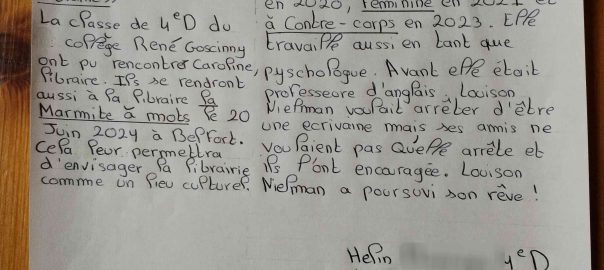 La classe de 4eD du
collège René Goscinny
ont pu rencontrer Caroline,
libraire. Ils se rendront
aussi à la libraire La
Marmite à mots le 20
Juin 2024 à Belfort.
Cela leur permettra
d'envisager la librairie
comme un lieu culturel.
en 2020, Féminine en 2021 et
à Contre-corps en 2023. Elle
travaille aussi en tant que
pyschologue. Avant elle était
professeure d'anglais. Louison
Nielman voulait arrêter d'être
une écrivaine mais ses amis ne
voulaient pas Qu'elle arrête et
ils l'ont encouragée. Louison
Nielman a poursuvi son rêve !
Helin 4eD